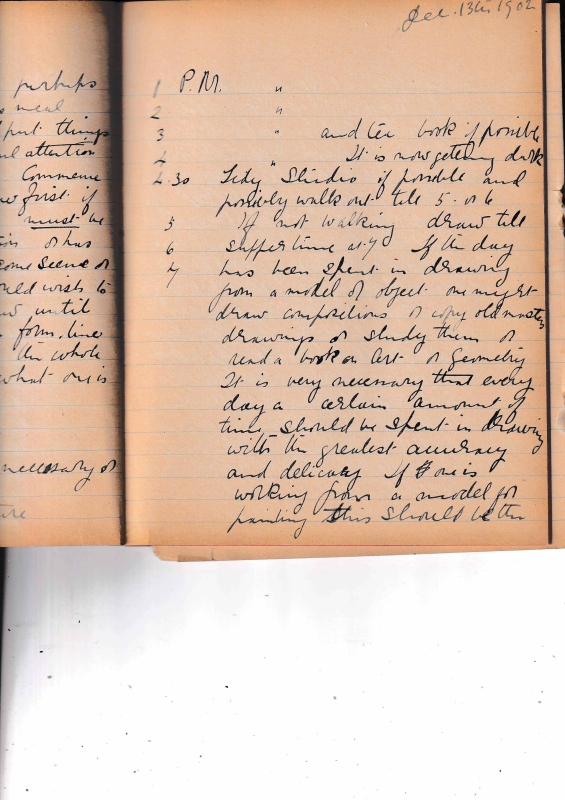 perhaps
meal
put things
attention
Commence
first if
must be
or has
some scene or
wists to
until
form, line
the whole
what one is
necessary or
Dec. 13th 1902
1 P.M. "
2 "
3 " and tea book if possible
4 " It is now getening dark
4.30 Tidy Studio if possible and
possibly walk out till 5 or 6
5 If not walking draw till
6 suppertime at 7 If the day
7 has been spent in drawing
from a model or object one might
draw compositions or copy old masters
drawings or study them or
read a book on Art or Geometry
It is very necessary that every
day a certain amount of
time should be spent in drawing
with the greatest accuracy
and delicacy If one is
working from a model for
painting this should be the